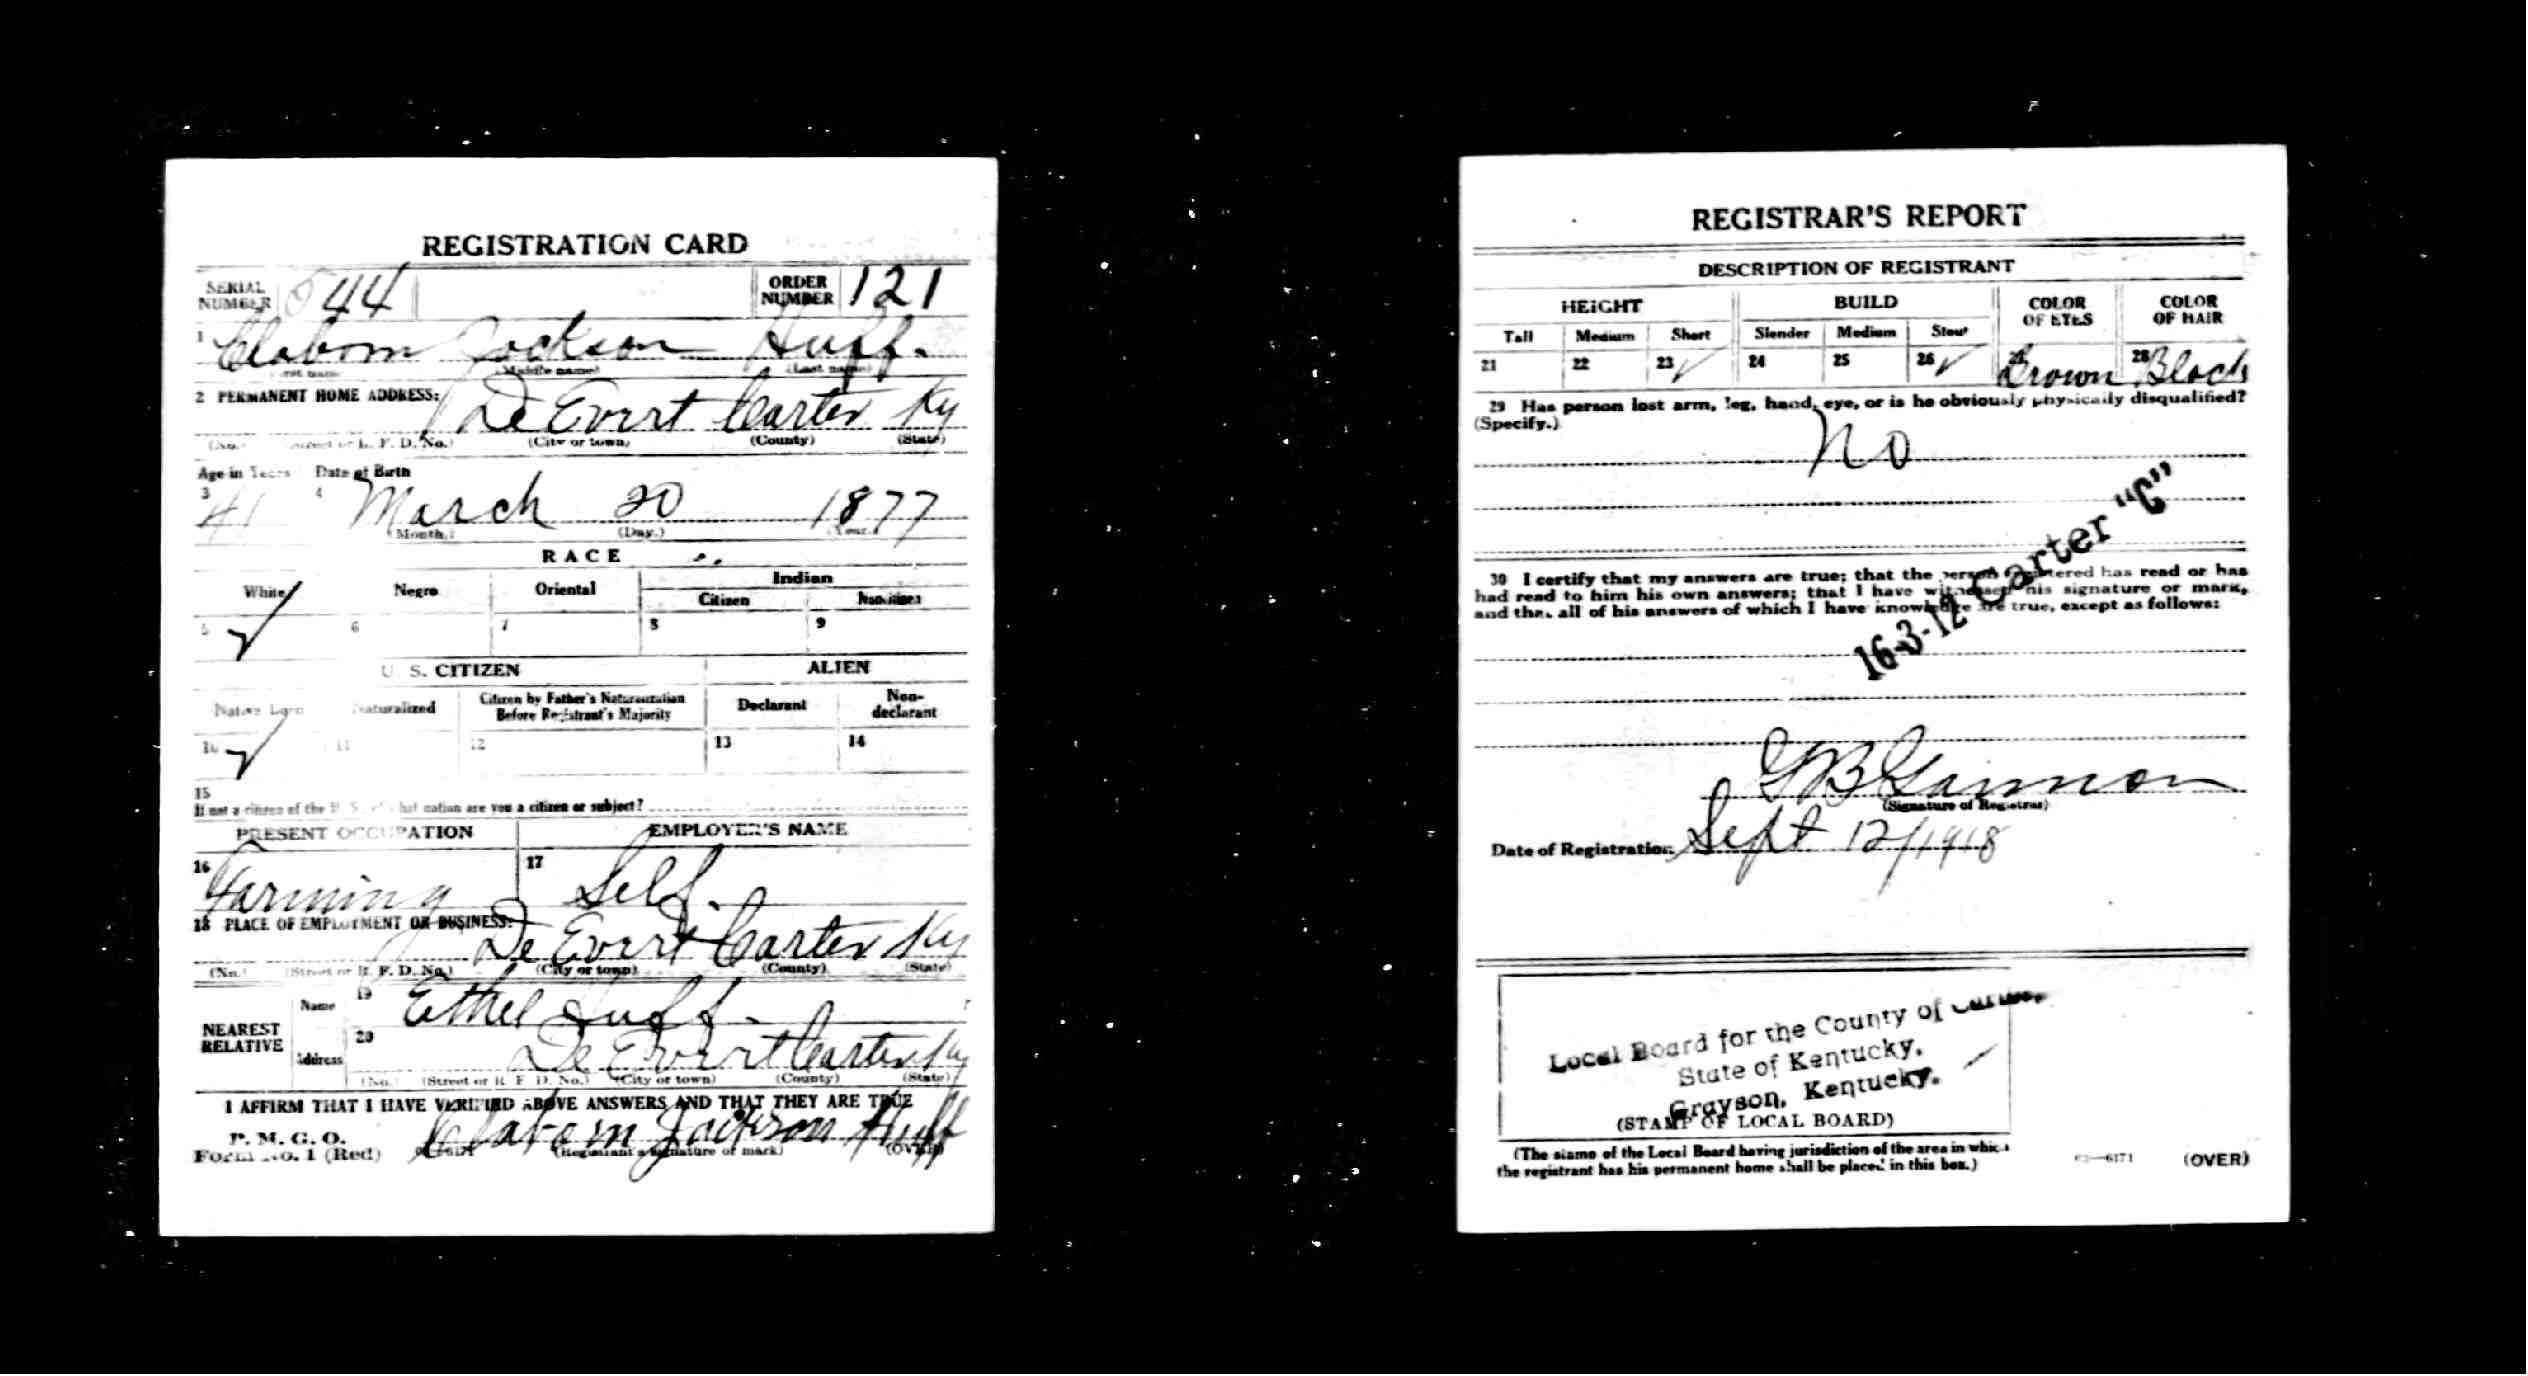 REGISTRATION CARD
SERIAL NUMBER 544 ORDER NUMBER 121
1 Claborn Jackson Huff.
(Middle name) (Last name)
2 PERMANENT HOME ADDRESS: De Evert Carter Ky
(No.) (Street or R. F. D. No.) (City or town) (County) (State)
Age in Years Date of Birth
3 41 4 March 20 1877
(Month.) (Day.) (Year.)
RACE
White Negro Oriental Indian
Citizen Noncitizen
5 ✓ 6 7 8 9
U. S. CITIZEN ALIEN
Native Born Naturalized Citizen by Father's Naturalization Before Registrant's Majority Declarant Non-declarant
10 ✓ 11 12 13 14
15
If not a citizen of the U. S., of what nation are you a citizen or subject?
PRESENT OCCUPATION EMPLOYER'S NAME
16 Farming 17 Self.
18 PLACE OF EMPLOYMENT OR BUSINESS: De Evert Carter Ky
(No.) (Street or R. F. D. No.) (City or town) (County) (State)
NEAREST RELATIVE Name 19 Ethel Huff.
Address 20 De Evert Carter Ky
(No.) (Street or R. F. D. No.) (City or town) (County) (State)
I AFFIRM THAT I HAVE VERIFIED ABOVE ANSWERS AND THAT THEY ARE TRUE
P. M. G. O.
Form No. 1 (Red) Claborn Jackson Huff
(Registrant's signature or mark) (OVER)
REGISTRAR'S REPORT
DESCRIPTION OF REGISTRANT
HEIGHT BUILD COLOR OF EYES COLOR OF HAIR
Tall Medium Short Slender Medium Stout
21 22 23 ✓ 24 25 26 ✓ 27 Brown 28 Black
29 Has person lost arm, leg, hand, eye, or is he obviously physically disqualified?
(Specify.)
No
30 I certify that my answers are true; that the person registered has read or has
had read to him his own answers; that I have witnessed his signature or mark,
and that all of his answers of which I have knowledge are true, except as follows:
16-3-12 Carter "C"
G B Gannon
(Signature of Registrar)
Date of Registration Sept 12/1918
Local Board for the County of Carter,
State of Kentucky,
Grayson, Kentucky.
(STAMP OF LOCAL BOARD)
(The stamp of the Local Board having jurisdiction of the area in which
the registrant has his permanent home shall be placed in this box.)
03—6171 (OVER)